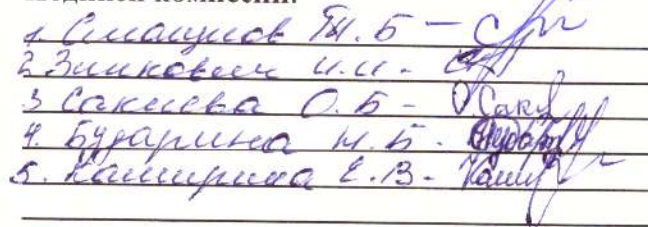 комиссии:
1. Смаилов Т.Б -
2 Зинкович И.И. -
3 Сакиева О.Б - Саки
4. Бударина Н.Б.
5. Каширина Е.В -